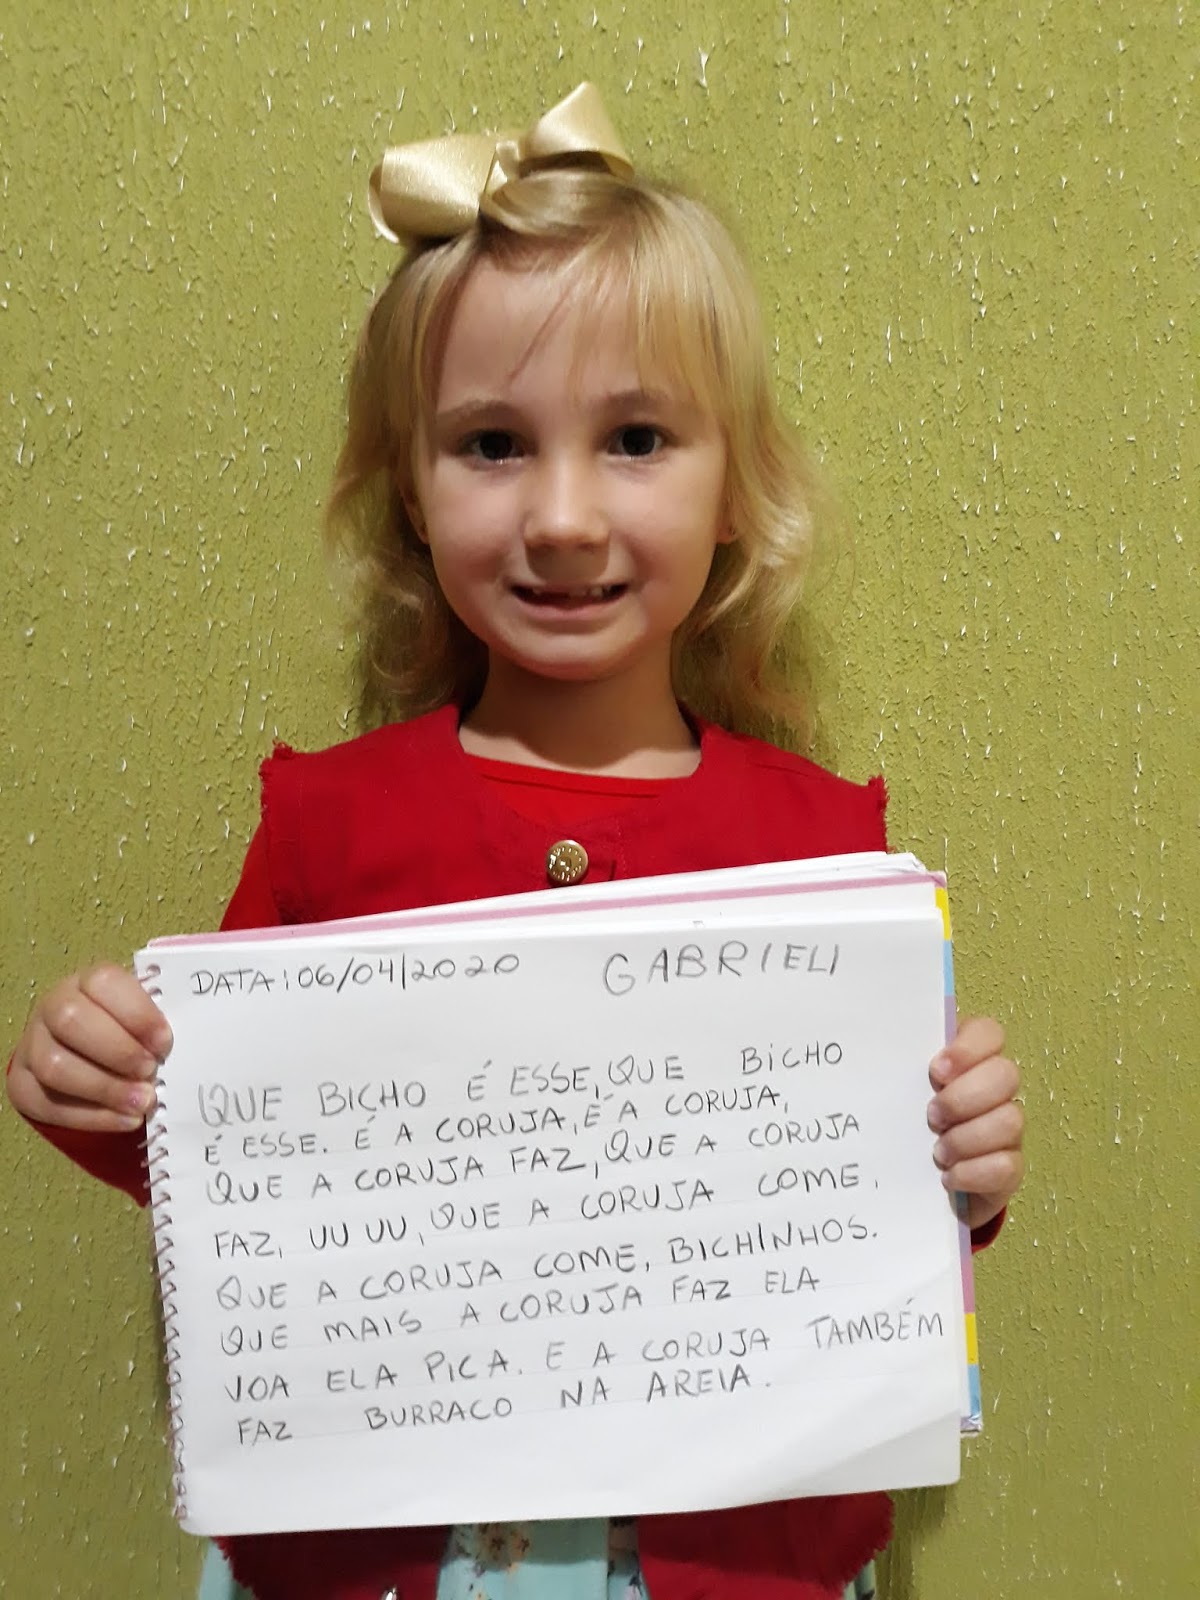 DATA: 06/04/2020 GABRIELI
QUE BICHO É ESSE, QUE BICHO
É ESSE. É A CORUJA, É A CORUJA,
QUE A CORUJA FAZ, QUE A CORUJA
FAZ, UU UU, QUE A CORUJA COME,
QUE A CORUJA COME, BICHINHOS.
QUE MAIS A CORUJA FAZ ELA
VOA ELA PICA. E A CORUJA TAMBÉM
FAZ BURRACO NA AREIA.